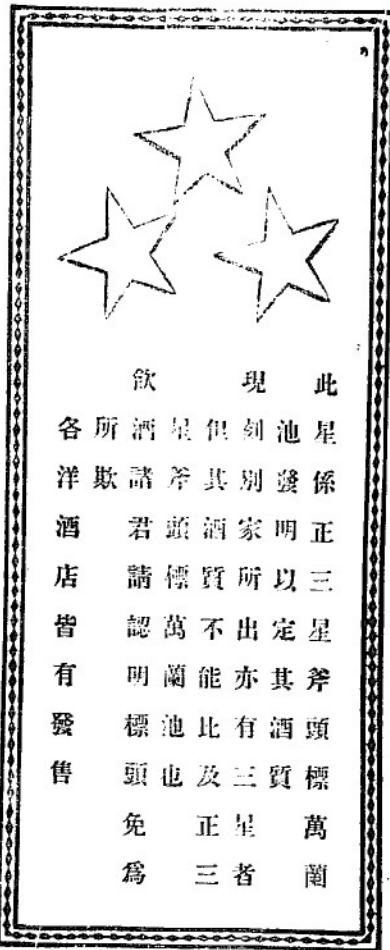 此星係正三星斧頭標萬蘭
池發明以定其酒質
現列別家所出亦有三星者
但其酒質不能比及正三
星斧頭標萬蘭池也
飲酒諸君請認明標頭免爲
所欺
各洋酒店皆有發售